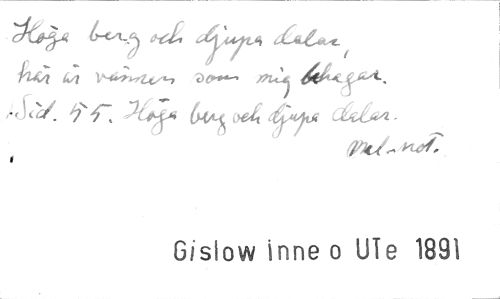 Höga berg och djupa dalar,
här är vännen som mig behagar.
Sid. 55. Höga berg och djupa dalar.
Mel. not.
Gislow Inne o UTe 1891